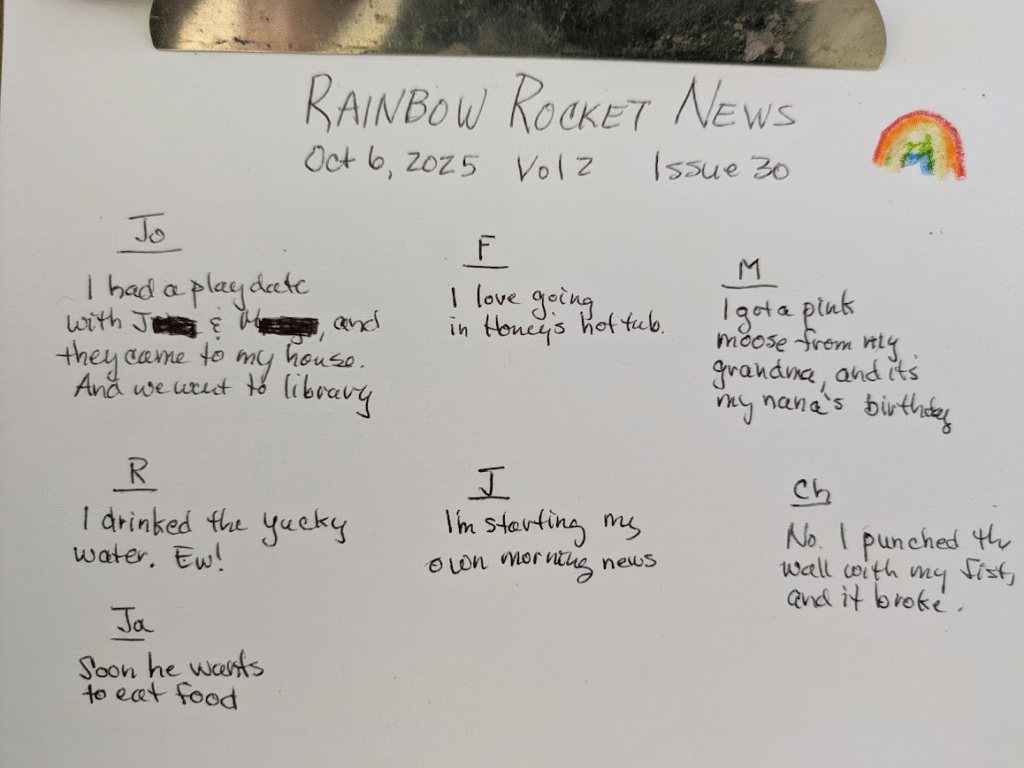 RAINBOW ROCKET NEWS
Oct 6, 2025 Vol 2 Issue 30
Jo
I had a playdate
with J & M, and
they came to my house.
And we went to library
F
I love going
in Honey's hot tub.
M
I got a pink
moose from my
grandma, and its
my nana's birthday
R
I drinked the yucky
water. Ew!
J
I'm starting my
own morning news
Ch
No. I punched the
wall with my fist,
and it broke.
Ja
Soon he wants
to eat food